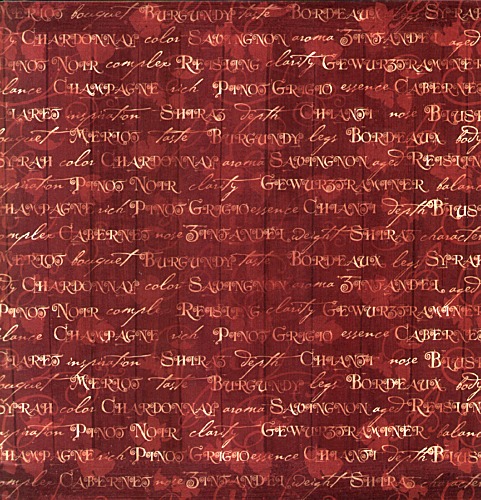 MERLOT bouquet BURGUNDY taste BORDEAUX legs SYRAH
CHARDONNAY color SAUVIGNON aroma ZINFANDEL aged
PINOT NOIR complex RIESLING clarity GEWURZTRAMINER
CHAMPAGNE rich PINOT GRIGIO essence CABERNET
CLARET inspiration SHIRAZ depth CHIANTI nose BLUSH
bouquet MERLOT taste BURGUNDY legs BORDEAUX body
SYRAH color CHARDONNAY aroma SAUVIGNON aged RIESLING
inspiration PINOT NOIR clarity GEWURZTRAMINER balance
CHAMPAGNE rich PINOT GRIGIO essence CHIANTI depth BLUSH
complex CABERNET nose ZINFANDEL weight SHIRAZ character
MERLOT bouquet BURGUNDY taste BORDEAUX legs SYRAH
CHARDONNAY color SAUVIGNON aroma ZINFANDEL aged
PINOT NOIR complex RIESLING clarity GEWURZTRAMINER
CHAMPAGNE rich PINOT GRIGIO essence CABERNET
CLARET inspiration SHIRAZ depth CHIANTI nose BLUSH
bouquet MERLOT taste BURGUNDY legs BORDEAUX body
SYRAH color CHARDONNAY aroma SAUVIGNON aged RIESLING
inspiration PINOT NOIR clarity GEWURZTRAMINER balance
CHAMPAGNE rich PINOT GRIGIO essence CHIANTI depth BLUSH
complex CABERNET nose ZINFANDEL weight SHIRAZ character